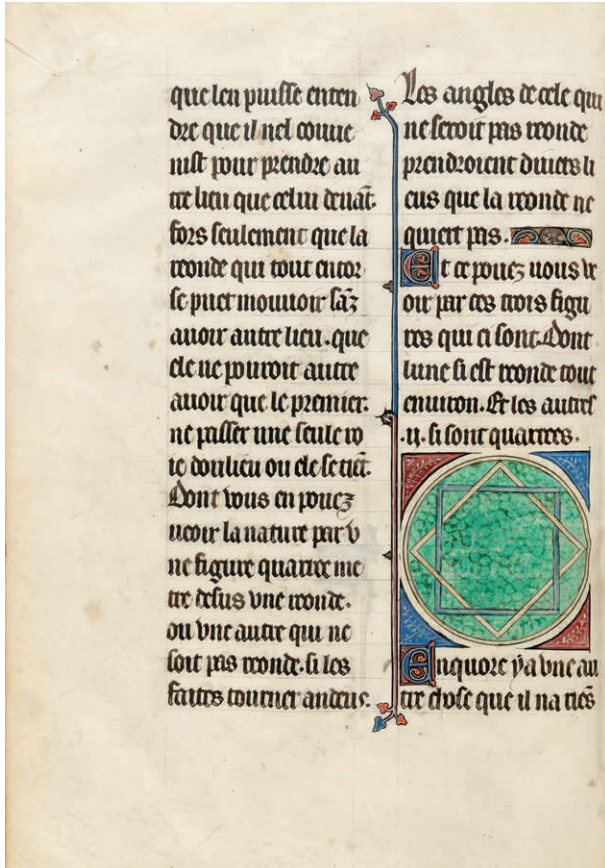 que len puisse enten
dre que il nel couue
nist pour prendre au
tre lieu que celui deuãt.
fors seulement que la
reonde qui tout entor
se puet mouuoir sãz
auoir autre lieu. que
ele ne pouroit autre
auoir que le premier.
ne passer une seule ro
ie dou lieu ou ele se tiẽt.
Dont vous en pouez
ueoir la nature par v
ne figure quarree me
tre desus vne reonde.
ou vne autre qui ne
soit pas reonde. si les
faites tourner andeus.
Les angles de cele qui
ne seroit pas reonde
prendroient diuers li
eus que la reonde ne
quiert pas.
Et ce pouez uous ve
oir par ces trois figu
res qui ci sont. Dont
lune si est reonde tout
enuiron. Et les autres
.ij. si sont quarrees.
Enquore y a vne au
tre chose que il na riẽs